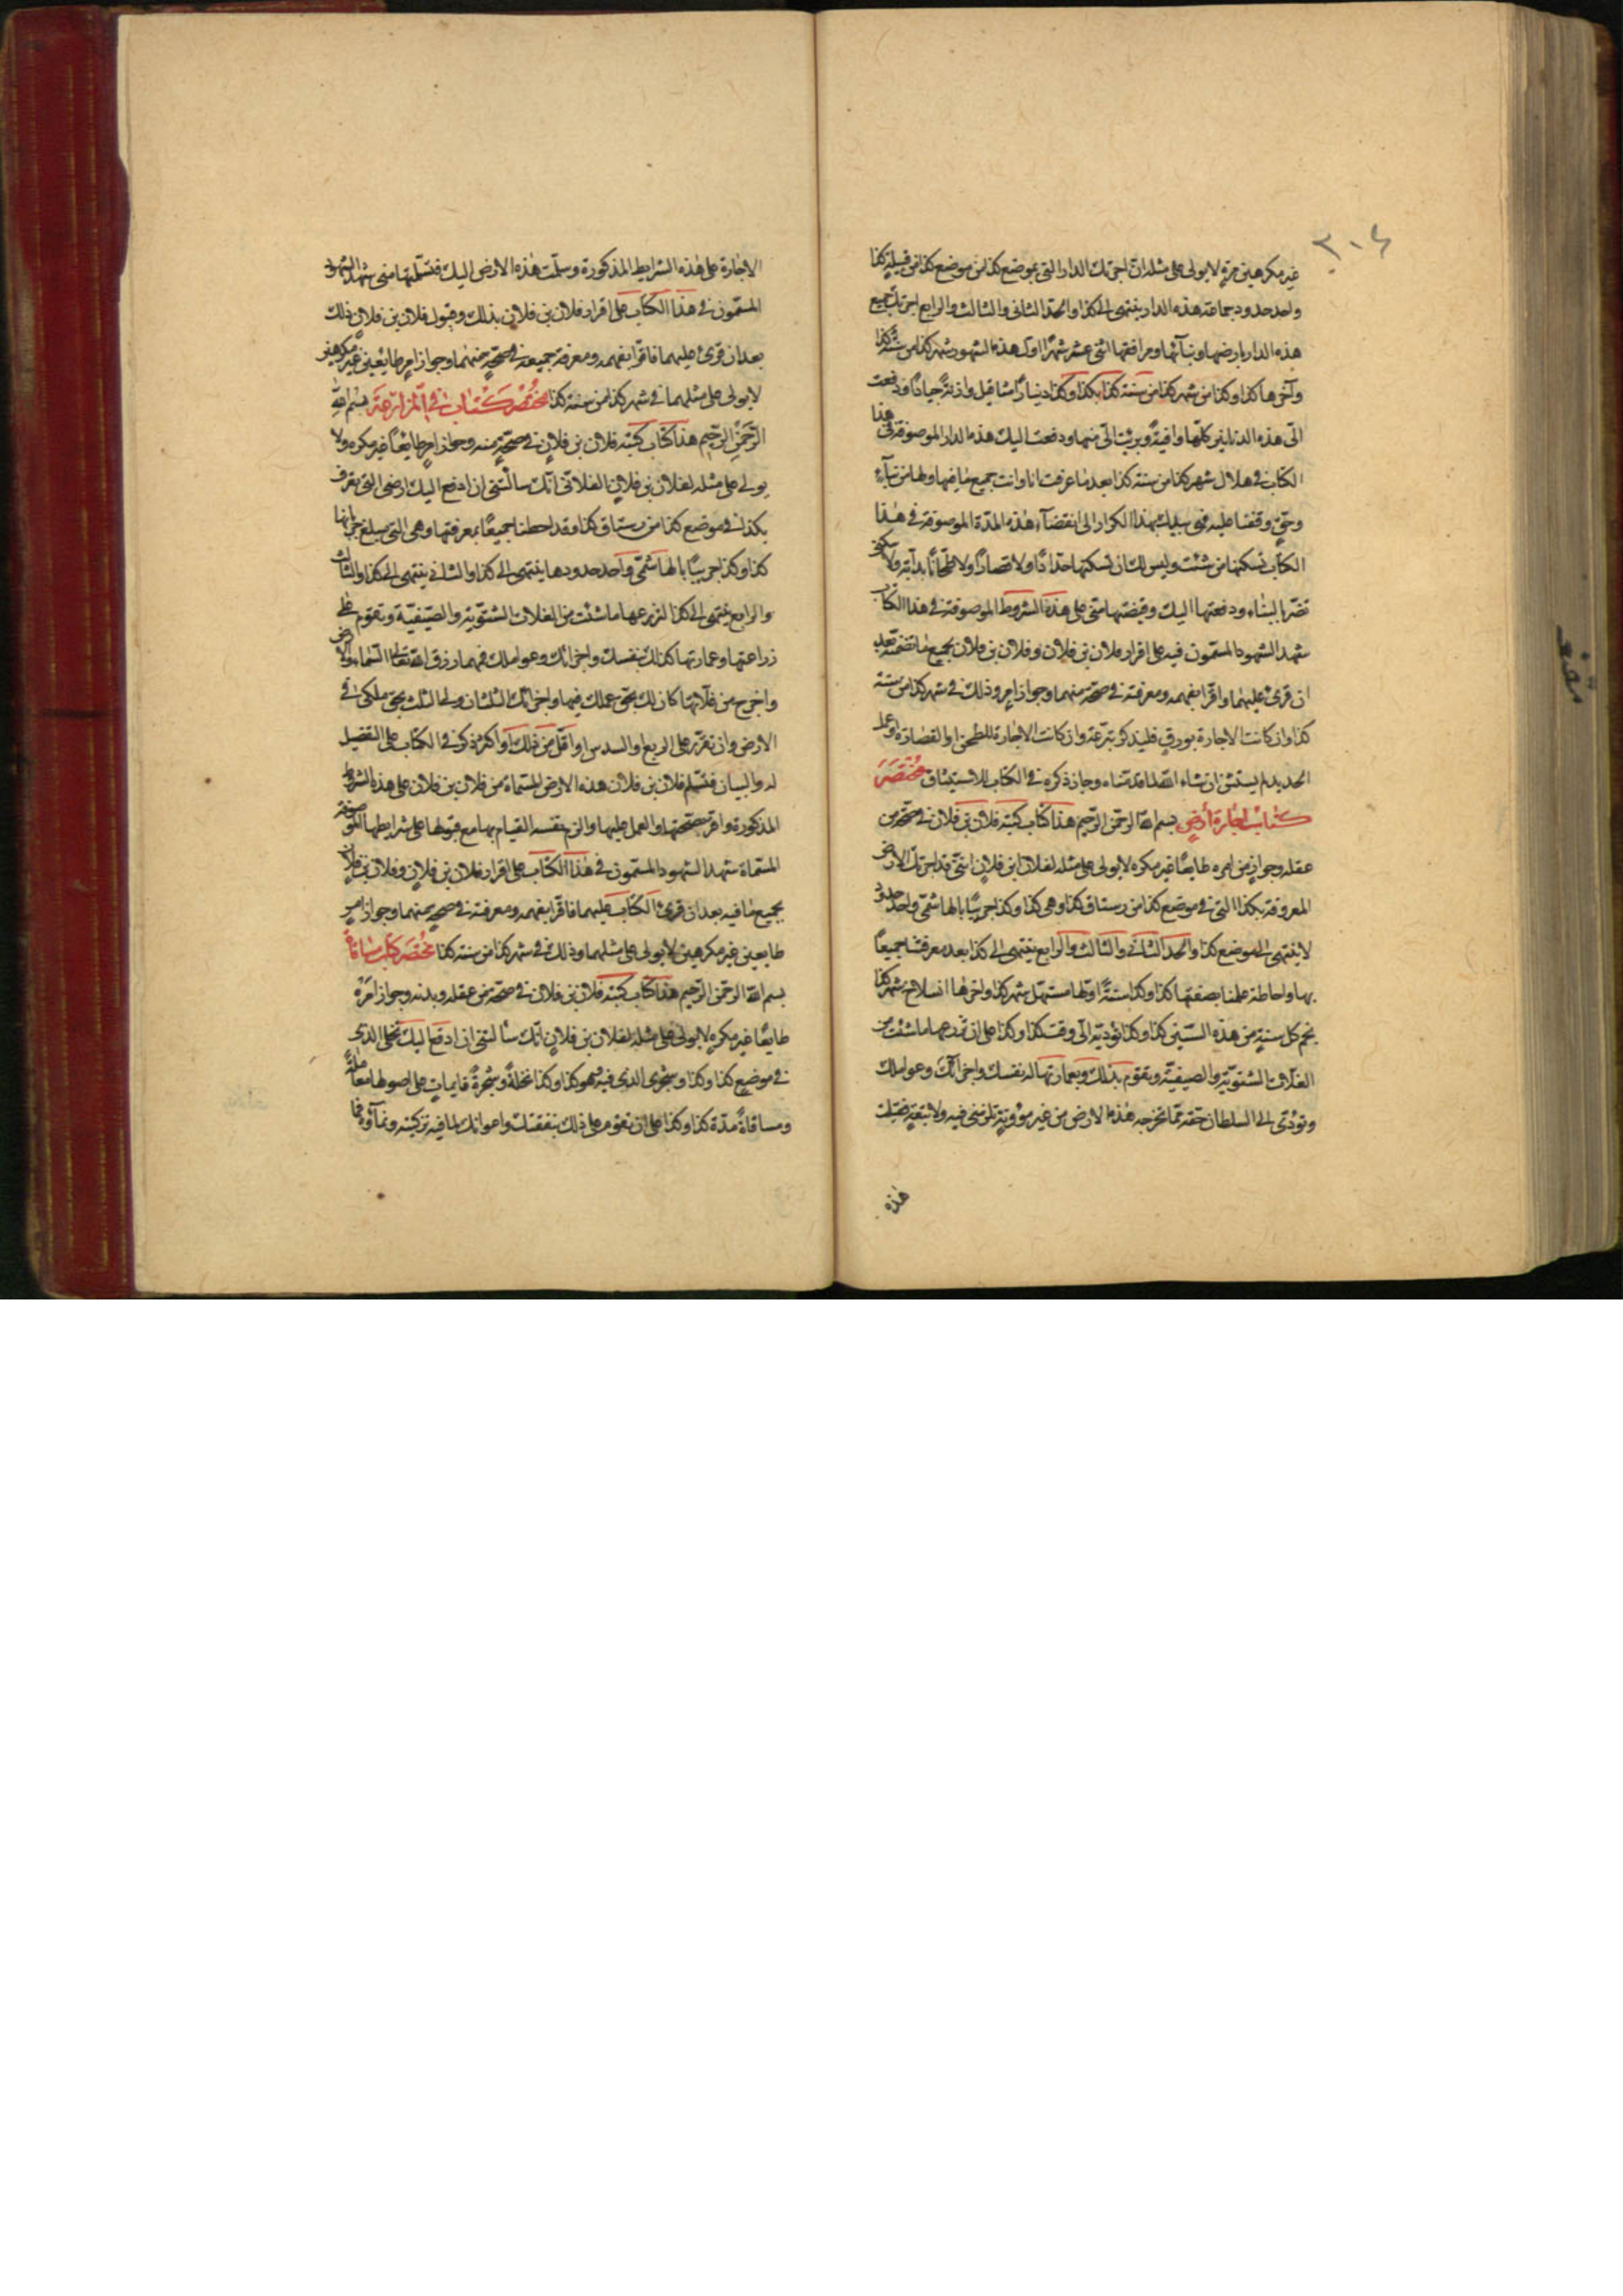 ٢٠٤
غير مكرهين لا يولى على مثله ان اجرتك الدار التي بموضع كذا من موضع كذا من قبيلة كذا
واحد حدود جماعة هذه الدار ينتهى الى كذا والحد الثاني والثالث والرابع اجرتك جميع
هذه الدار بارضها وبنائها ومرافقها اثنى عشر شهرًا اول هذه الشهور شهر كذا من سنة كذا
وآخرها كذا وكذا من شهر كذا من سنة كذا بكذا وكذا دينارًا مثاقيل وازنة جيادًا ودفعت
الىّ هذه الدنانير كلّها وافية وبرئت الىّ منها ودفعت اليك هذه الدار الموصوفة في هذا
الكتاب في هلال شهر كذا من سنة كذا بعدما عرفت انا وانت جميع ما فيها ولها من بناء
وحقّ ووقفنا عليه فهى بيدك بهذا الكرا الى انقضآء هذه المدّة الموصوفة في هذا
الكتاب تسكنها من شئت وليس لك ان تسكنها حدّادًا ولا قصارًا ولا طحّانًا بدابّة ولا
تضرّ بالبناء ودفعتها اليك وقبضتها منّى على هذه الشروط الموصوفة في هذا الكتاب
شهد الشهود المسمّون فيه على اقرار فلان بن فلان وفلان بن فلان بجميع ما تضمنه بعد
ان قرئ عليهما واقرّا بفهمه ومعرفته في صحّة منهما وجواز امر وذلك في شهر كذا من سنة
كذا وان كانت الاجارة بورق فليذكر بترعة وان كانت الاجارة للطحن او القصارة او عمل
الحديد لم يستثن ان شاء الله لما قدّمناه وجاز ذكره في الكتاب للاستيثاق مختصر
كتاب اجارة ارض بسم الله الرحمن الرّحيم هذا كتاب كتبه فلان بن فلان في صحّة من
عقله وجواز من امره طايعًا غير مكره لا يولى على مثله لفلان ابن فلان انّنى قد اجرتك الارض
المعروفة بكذا التي في موضع كذا من رستاق كذا وهى كذا وكذا جريبًا بالهاشمّى واحد حدود
لا ينتهى الى موضع كذا والحد الثاني والثالث والرابع ينتهى الى كذا بعد معرفتنا جميعًا
بها واحاطة علمنا بصفتها كذا وكذا سنةً اوّلها مستهلّ شهر كذا واخرها انسلاخ شهر كذا
نجم كل سنة من هذه السّنين كذا وكذا تؤديّه الىّ وقت كذا وكذا على ان تزرعها ما شئت من
الغلّات الشتويّة والصيفيّة وتقوم بذلك وبعمارتها له نفسك واجرائك وعواملك
وتؤدّى الى السلطان حقه ممّا تخرجه هذه الارض من غير مؤونة تلزمنى فيه ولا تبعة فقبلت
هذه
الاجارة على هذه الشرايط المذكورة وسلّمت هذه الارض اليك فتسلّمتها منى شهد الشهود
المسمّون في هذا الكتاب على اقرار فلان بن فلان بذلك وقبول فلان بن فلان ذلك
بعد ان قرئ عليهما فاقرّا بفهمه ومعرفة جميعه في صحّة منهما وجواز امر طايعين غير مكرهين
لا يولى على مثلهما في شهر كذا من سنة كذا مختصر كتاب في المزارعة بسم الله
الرّحمن الرّحيم هذا كتاب كتبه فلان بن فلان في صحّة منه وجواز امر طايعًا غير مكره ولا
يولى على مثله لفلان بن فلان الفلانى انّك سألتنى ان ادفع اليك ارضى التي تعرف
بكذا في موضع كذا من رستاق كذا وقد احطنا جميعًا بمعرفتها وهى التي مبلغ جربانها
كذا وكذا جريبًا بالهاشمّى واحد حدودها ينتهى الى كذا والثاني ينتهى الى كذا والثالث
والرابع ينتهى الى كذا لتزرعها ما شئت من الغلات الشتويّة والصّيفيّة وتقوم على
زراعتها وعمارتها كذلك بنفسك واجرائك وعواملك فمهما رزق الله تعالى السماء والارض
واخرج من غلّاتها كان لك بحقّ عملك فيها واجرائك الثلثان ولى الثلث بحقّ ملكى في
الارض وان تقرّر على الربع او السدس او اقلّ من ذلك او اكثر ذكر في الكتاب على التفصيل
له والبيان فتسلّم فلان بن فلان هذه الارض المسمّاة من فلان بن فلان على هذه الشروط
المذكورة واقرّ بصحّتها والعمل عليها والزم نفسه القيام بها مع قبولها على شرايطها الموصوفة
المسمّاة شهد الشهود المسمّون في هذا الكتاب على اقرار فلان بن فلان وفلان بن فلان
بجميع ما فيه بعد ان قرئ الكتاب عليهما فاقرّا بفهمه ومعرفته في صحة منهما وجواز امر
طايعين غير مكرهين لا يولى على مثلهما وذلك في شهر كذا من سنة كذا مختصر كتاب مساقاة
بسم الله الرحمن الرّحيم هذا كتاب كتبه فلان بن فلان في صحّة من عقله وبدنه وجواز امره
طايعًا غير مكره لا يولى على مثله لفلان بن فلان انّك سألتنى ان ادفع اليك نخلى الذى
في موضع كذا وكذا وشجرى الذى فيه وهو كذا وكذا نخلةً وشجرةً قايمات على اصولها معاملةً
ومساقاةً مدّة كذا وكذا على ان تقوم على ذلك بنفقتك واعوانك بما فيه تزكيته ونمآؤه فما